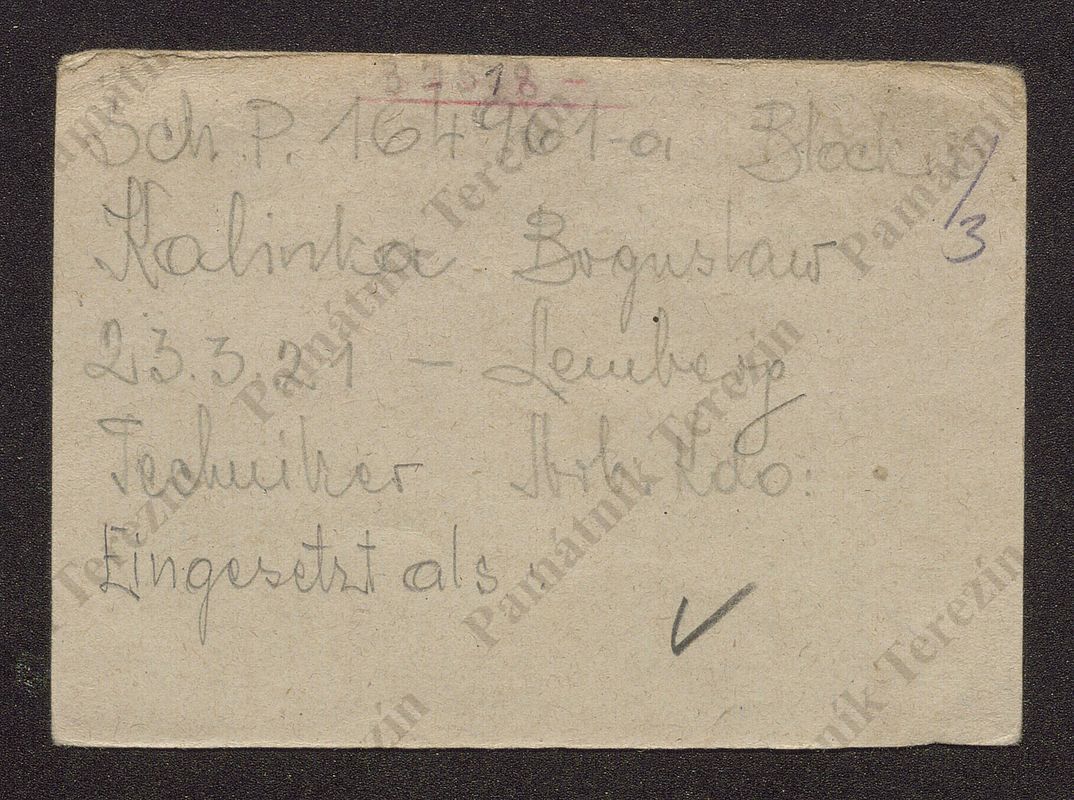 37518 -
Sch. P. 164961-a Block:
/3
Kalinka Bogusław
23.3.21 - Lemberg
Techniker Arb. Kdo:
Eingesetzt als:
Památník Terezín